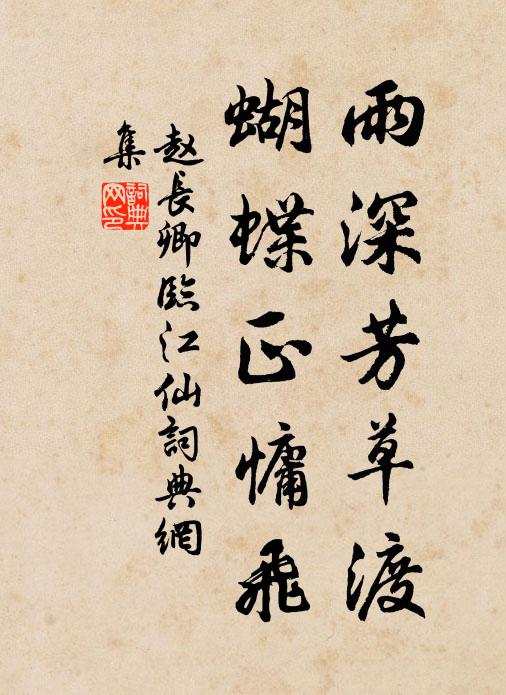 雨深芳草渡
蝴蝶正慵飛
赵長卿臨江仙詞典網
集
詞典網印